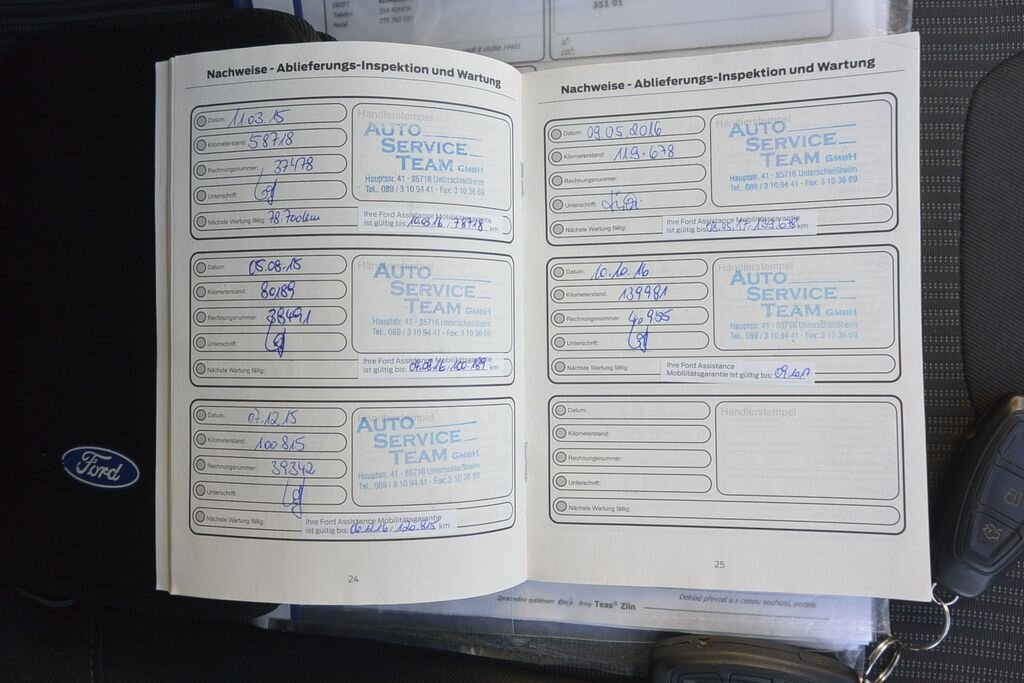 SWIFT
Telefon
Mobil
351 01
IČ
Nachweise - Ablieferungs-Inspektion und Wartung
Datum: 11.03.15
Kilometerstand: 58718
Rechnungsnummer: 37478
Unterschrift:
Nächste Wartung fällig: 78.700km
Händlerstempel
AUTO
SERVICE
TEAM GMBH
Hauptstr. 41 - 85716 Unterschleißheim
Tel.. 089 / 3 10 94 41 - Fax: 3 10 36 69
Ihre Ford Assistance Mobilitätsgarantie
ist gültig bis: 10.03.16 / 78718 km
Datum: 05.08.15
Kilometerstand: 80189
Rechnungsnummer: 38491
Unterschrift:
Nächste Wartung fällig:
Händlerstempel
AUTO
SERVICE
TEAM GMBH
Hauptstr. 41 - 85716 Unterschleißheim
Tel.. 089 / 3 10 94 41 - Fax: 3 10 36 69
Ihre Ford Assistance Mobilitätsgarantie
ist gültig bis: 04.08.16 / 100.189 km
Datum: 07.12.15
Kilometerstand: 100815
Rechnungsnummer: 39342
Unterschrift:
Nächste Wartung fällig:
Händlerstempel
AUTO
SERVICE
TEAM GMBH
Hauptstr. 41 - 85716 Unterschleißheim
Tel.. 089 / 3 10 94 41 - Fax: 3 10 36 69
Ihre Ford Assistance Mobilitätsgarantie
ist gültig bis: 06.12.16 / 120.815 km
24
Nachweise - Ablieferungs-Inspektion und Wartung
Datum: 09.05.2016
Kilometerstand: 119.678
Rechnungsnummer:
Unterschrift:
Nächste Wartung fällig:
Händlerstempel
AUTO
SERVICE
TEAM GMBH
Hauptstr. 41 - 85716 Unterschleißheim
Tel.. 089 / 3 10 94 41 - Fax: 3 10 36 69
Ihre Ford Assistance Mobilitätsgarantie
ist gültig bis: 08.05.17 / 139.678 km
Datum: 10.10.16
Kilometerstand: 139981
Rechnungsnummer: 40955
Unterschrift:
Nächste Wartung fällig:
Händlerstempel
AUTO
SERVICE
TEAM GMBH
Hauptstr. 41 - 85716 Unterschleißheim
Tel.. 089 / 3 10 94 41 - Fax: 3 10 36 69
Ihre Ford Assistance
Mobilitätsgarantie ist gültig bis: 09.10.17
Datum:
Kilometerstand:
Rechnungsnummer:
Unterschrift:
Nächste Wartung fällig:
Händlerstempel
25
Ford
Zpracováno systémem firmy Teas® Zlín
Doklad převzal a s cenou souhlasí, podpis